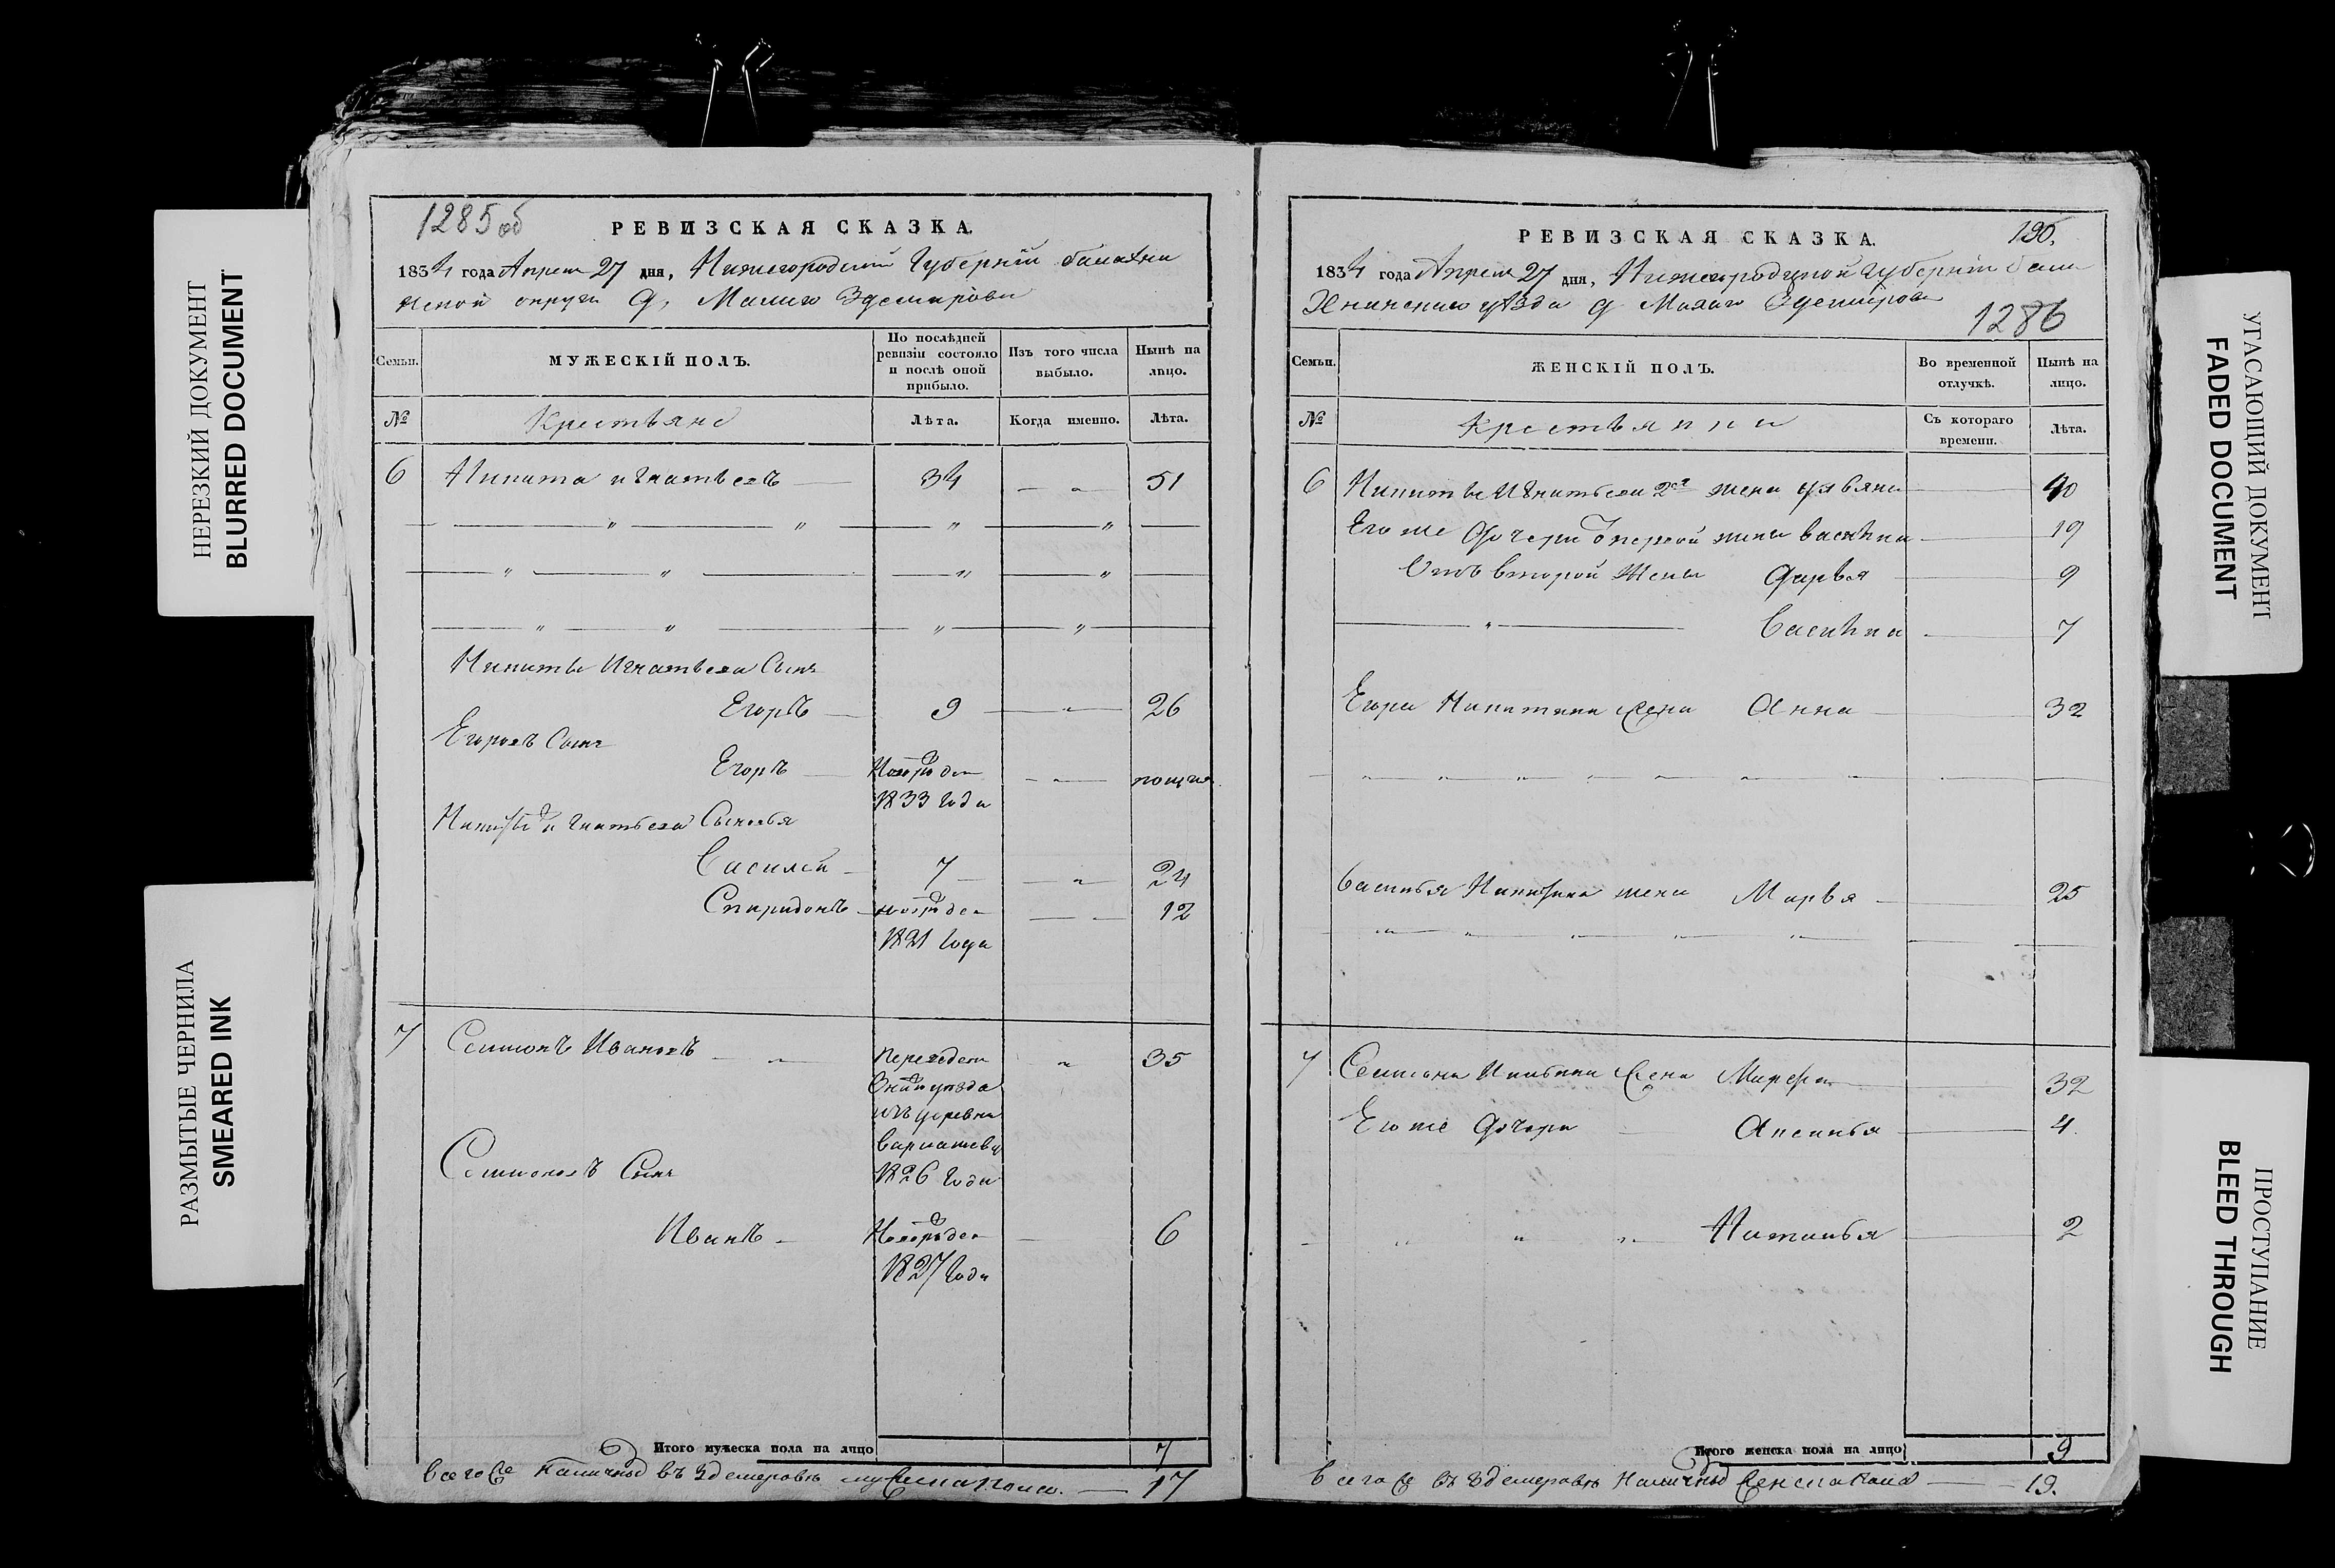 НЕРЕЗКИЙ ДОКУМЕНТ
BLURRED DOCUMENT
РАЗМЫТЫЕ ЧЕРНИЛА
SMEARED INK
1285 об
РЕВИЗСКАЯ СКАЗКА.
1834 года Апреля 27 дня, Нижегородской Губернии Балахни
нской округи д. Малаго
Семьи. МУЖЕСКІЙ ПОЛЪ. По послѣдней ревизіи состояло и послѣ оной прибыло. Изъ того числа выбыло. Нынѣ на лицо.
№ Крестьяне Лѣта. Когда именно. Лѣта.
6 Никита Игнатьевъ 34 51
Никиты Игнатьева Сынъ
Егоръ 9 26
Егоровъ Сынъ
Егоръ
1833 Года
Никиты Игнатьева Сыновья
Василей 7 24
Спиридонъ 12
1821 Года
7 Семионъ Ивановъ 35
уезда
изъ деревни
1826 Года
Семионовъ Сынъ
Иванъ 6
1827 Года
Итого мужеска пола на лицо 7
Всего наличнаго въ мужеска пола 17
РЕВИЗСКАЯ СКАЗКА. 190.
1834 года Апреля 27 дня, Нижегородской Губернии Бала
хнинскаго уѣзда д Малаго
1286
Семьи. ЖЕНСКІЙ ПОЛЪ. Во временной отлучкѣ. Нынѣ на лицо.
№ Крестьянки Съ котораго времени. Лѣта.
6 Никиты Игнатьева 2я жена Ульяна 40
Его же Дочери первой жены Василиса 19
Отъ второй Жены Дарья 9
Василиса 7
Егора Никитина Жена Анна 32
Василья Никитина жена Марья 25
7 Семиона Иванова Жена Марфа 32
Его же Дочери Аксинья 4
Наталья 2
Итого женска пола на лицо 9
Всего въ наличнаго Женска пола 19.
УГАСАЮЩИЙ ДОКУМЕНТ
FADED DOCUMENT
ПРОСТУПАНИЕ
BLEED THROUGH